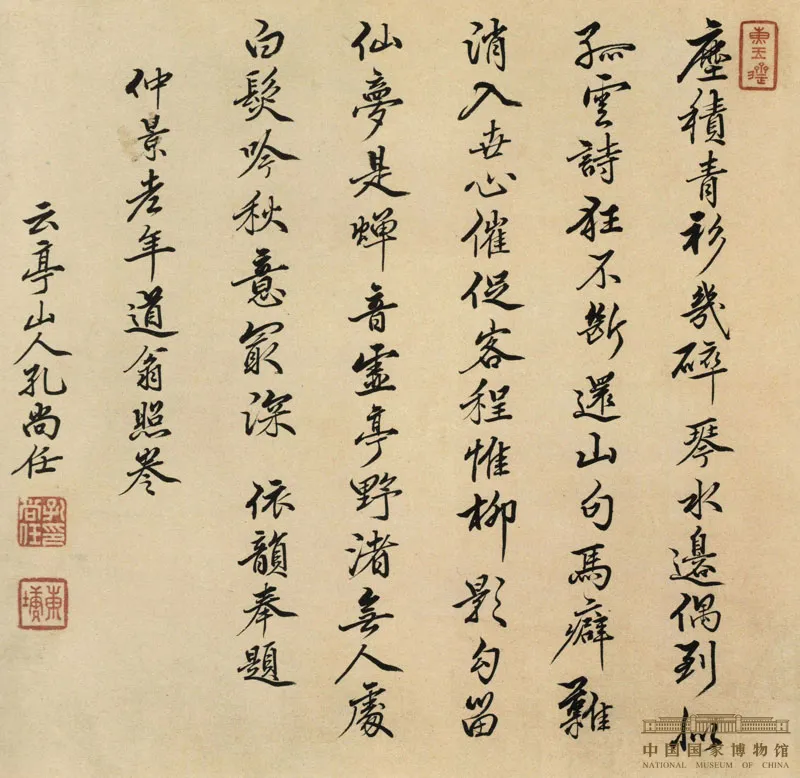 塵積青衫幾碎琴水邊偶到似
孤雲詩狂不斷還山句馬癖難
消入世心催促客程惟柳影勾留
仙夢是蟬音虛亭野渚無人處
白髮吟秋意最深 依韻奉題
仲景老年道翁照 孝
云亭山人孔尚任
孔印尚任
東塘
中国国家博物馆
NATIONAL MUSEUM OF CHINA